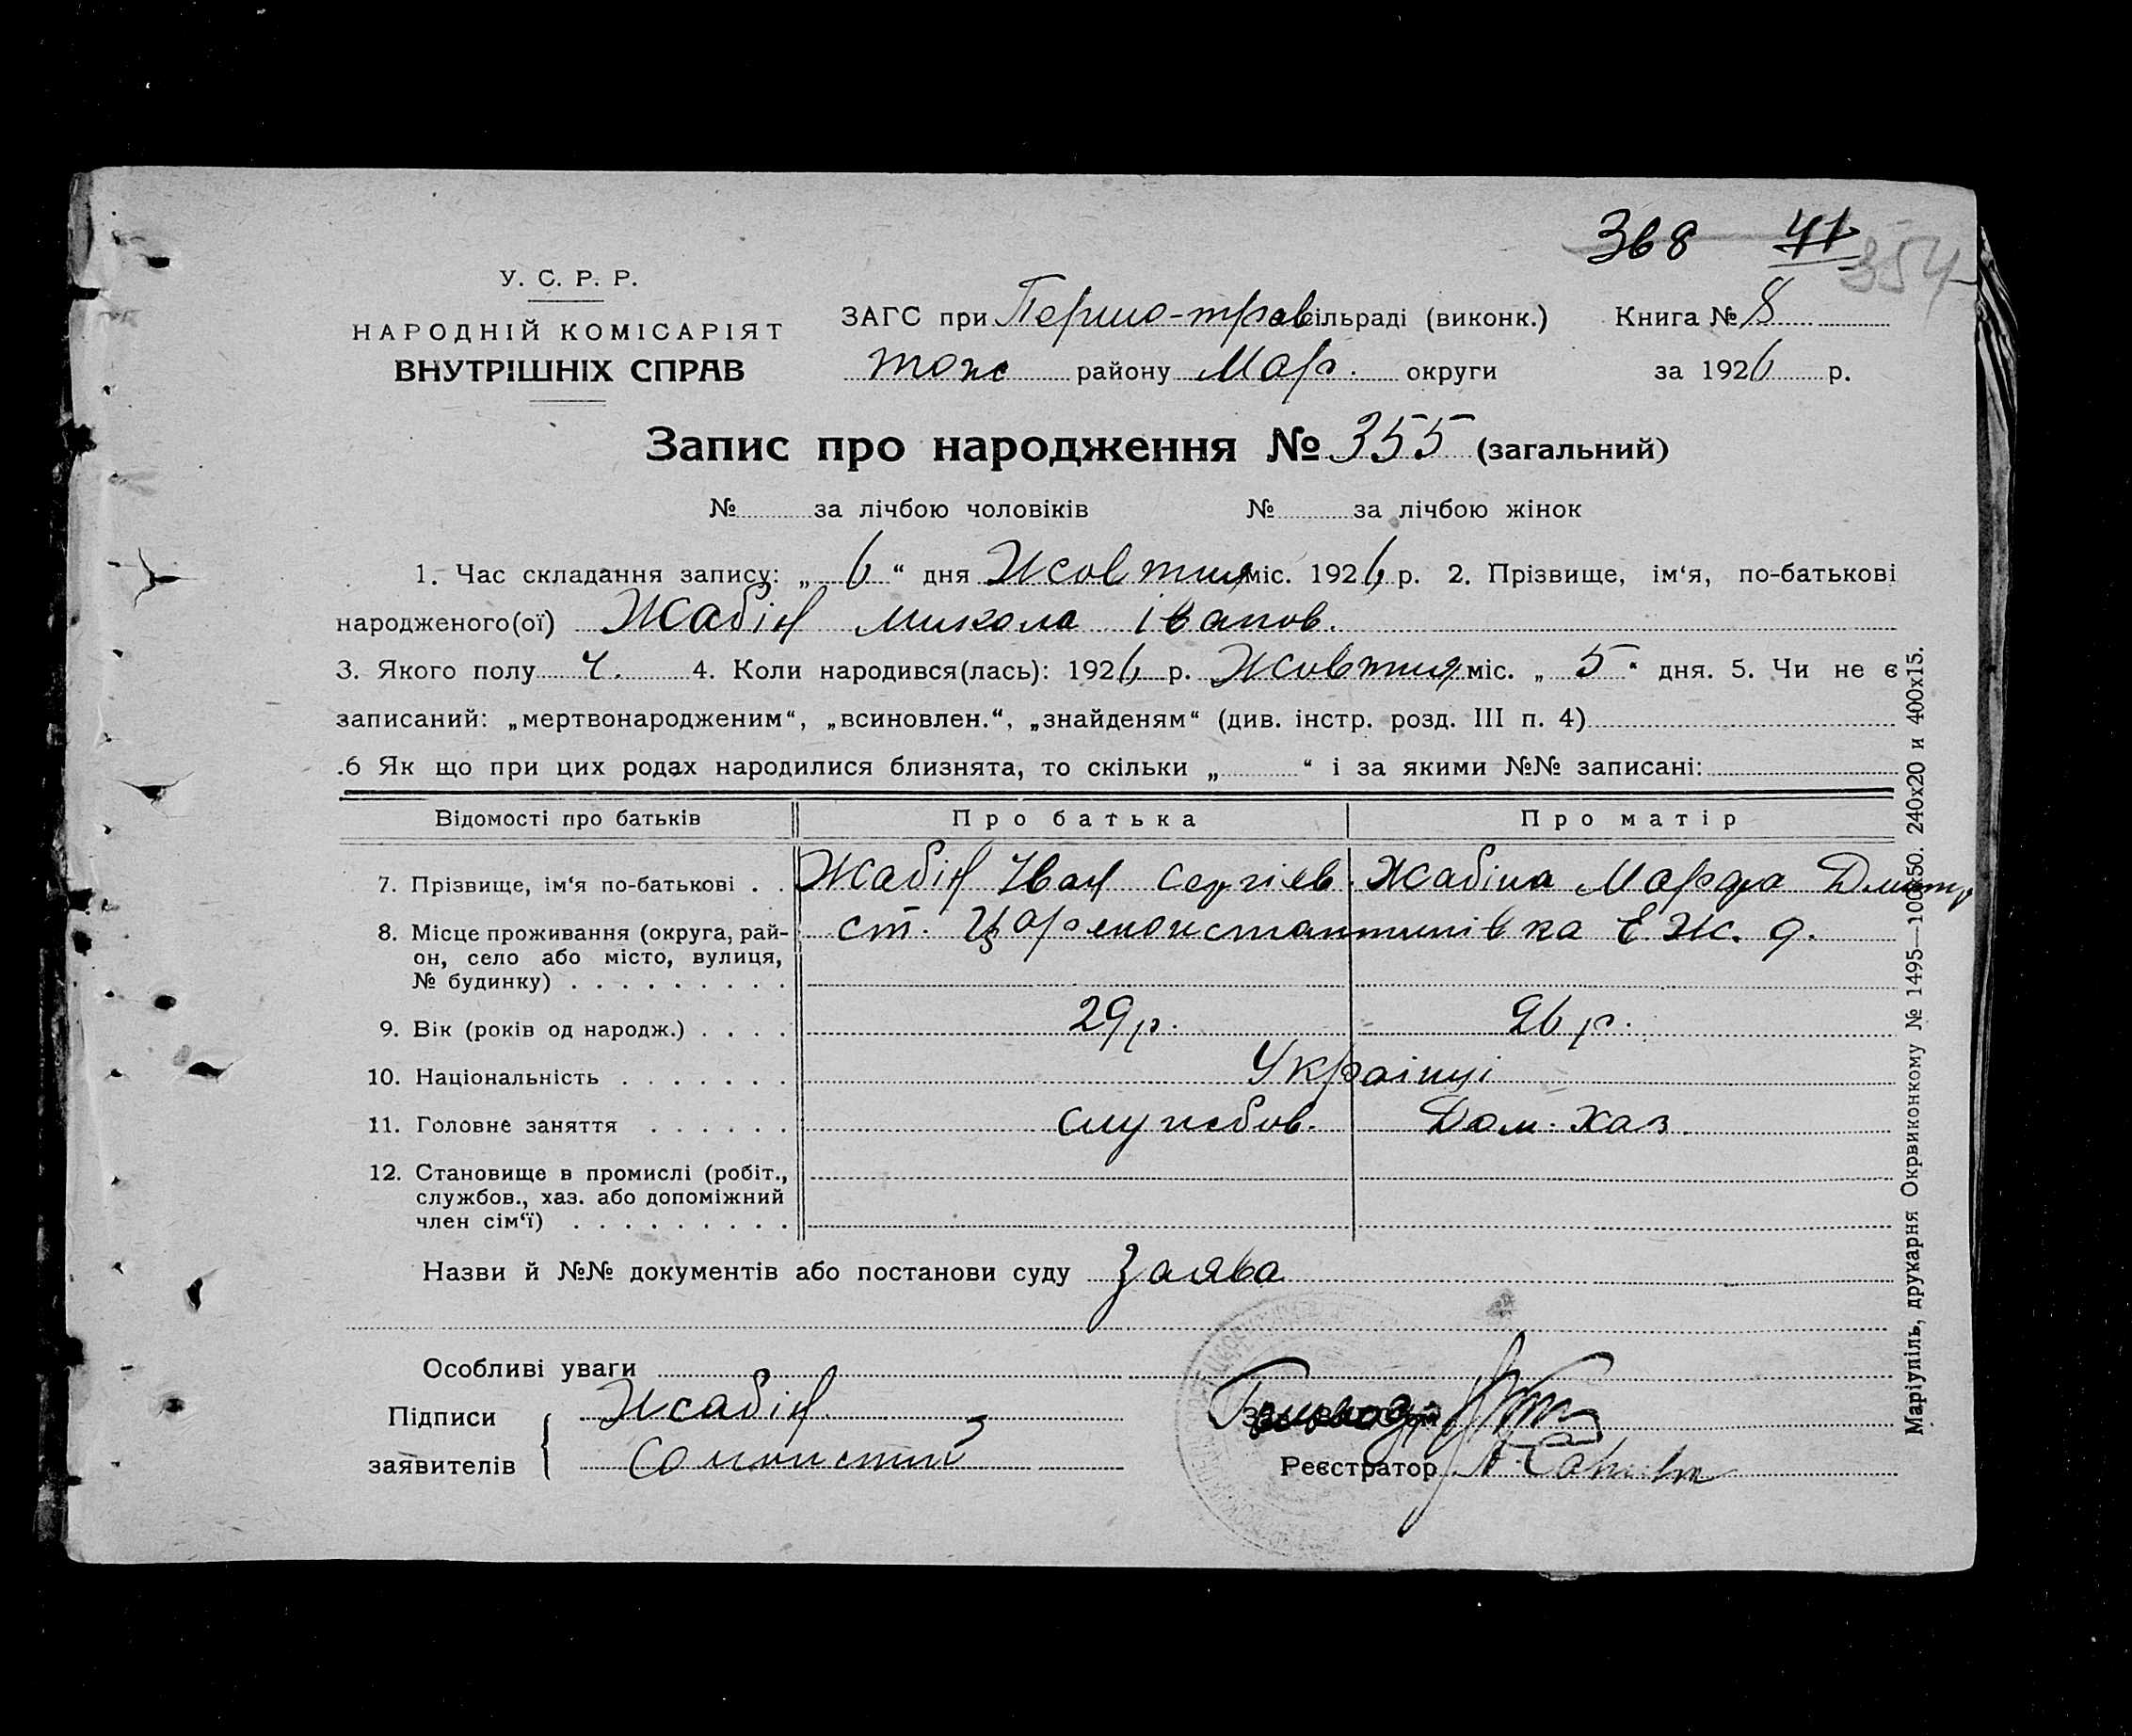 368 41
354
У. С. Р. Р.
НАРОДНІЙ КОМІСАРІЯТ
ВНУТРІШНІХ СПРАВ
ЗАГС при Першо-трав сільраді (виконк.) Книга № 8
тож району Мар. округи за 1926 р.
Запис про народження № 355 (загальний)
№ за лічбою чоловіків № за лічбою жінок
1. Час складання запису: „ 6 “ дня Жовтня міс. 1926 р. 2. Прізвище, ім‘я, по-батькові
народженого(ої) Жабін Микола Іванов.
3. Якого полу ч. 4. Коли народився(лась): 1926 р. Жовтня міс. „ 5 “ дня. 5. Чи не є
записаний: „мертвонародженим“, „всиновлен.“, „знайденям“ (див. інстр. розд. III п. 4)
.6 Як що при цих родах народилися близнята, то скільки „ “ і за якими №№ записані:
Відомості про батьків Про батька Про матір
7. Прізвище, ім‘я по-батькові . . Жабін Іван Сергіев. Жабіна Марфа Дмитр
8. Місце проживання (округа, рай- ст. Цареконстантинівка Е. Ж. д.
он, село або місто, вулиця,
№ будинку) . . . . . . . . .
9. Вік (років од народж.) . . . . 29 р. 26 р.
10. Національність . . . . . . . Українці
11. Головне заняття . . . . . . службов. Дом. хаз.
12. Становище в промислі (робіт.,
службов., хаз. або допоміжний
член сім‘ї) . . . . . . . . .
Назви й №№ документів або постанови суду Заява
Особливі уваги
Підписи Жабін
заявителів
Реєстратор
Маріупіль, друкарня Окрвиконкому № 1495—100х50. 240х20 и 400х15.